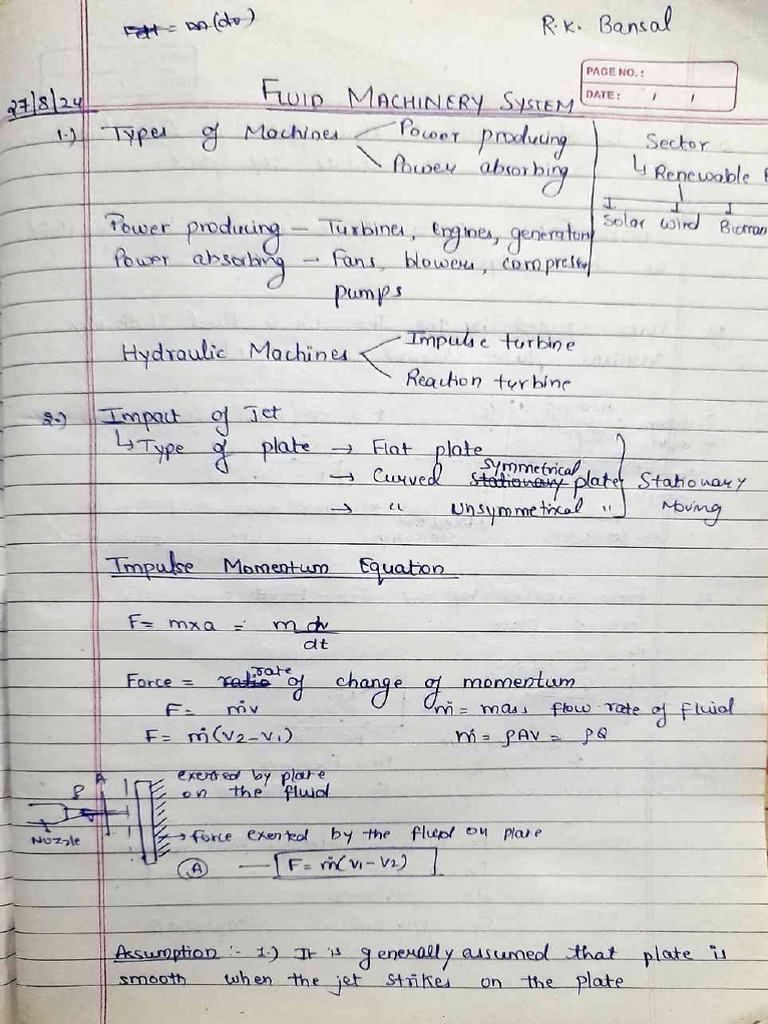 R.K. Bansal
PAGE NO.:
DATE: / /
27/8/24
FLUID MACHINERY SYSTEM
1.) Types of Machines Power producing
Power absorbing
Sector
↳ Renewable
Solar Wind
Power producing - Turbines, Engines, generators
Power absorbing - Fans, blowers, compressor
pumps
Hydraulic Machines Impulse turbine
Reaction turbine
2.) Impact of Jet
↳ Type of plate → Flat plate
→ Curved symmetrical plate
→ " Unsymmetrical "
Stationary
Moving
Impulse Momentum Equation
F = m×a = m dv/dt
Force = rate of change of momentum
F = ṁv ṁ = mass flow rate of fluid
F = ṁ(V2-V1) ṁ = ρAV = ρQ
exerted by plate
on the fluid
A
ρ
Nozzle
→ force exerted by the fluid on plate
(A) — F = ṁ(V1-V2)
Assumption :- 1.) It is generally assumed that plate is
smooth when the jet strikes on the plate